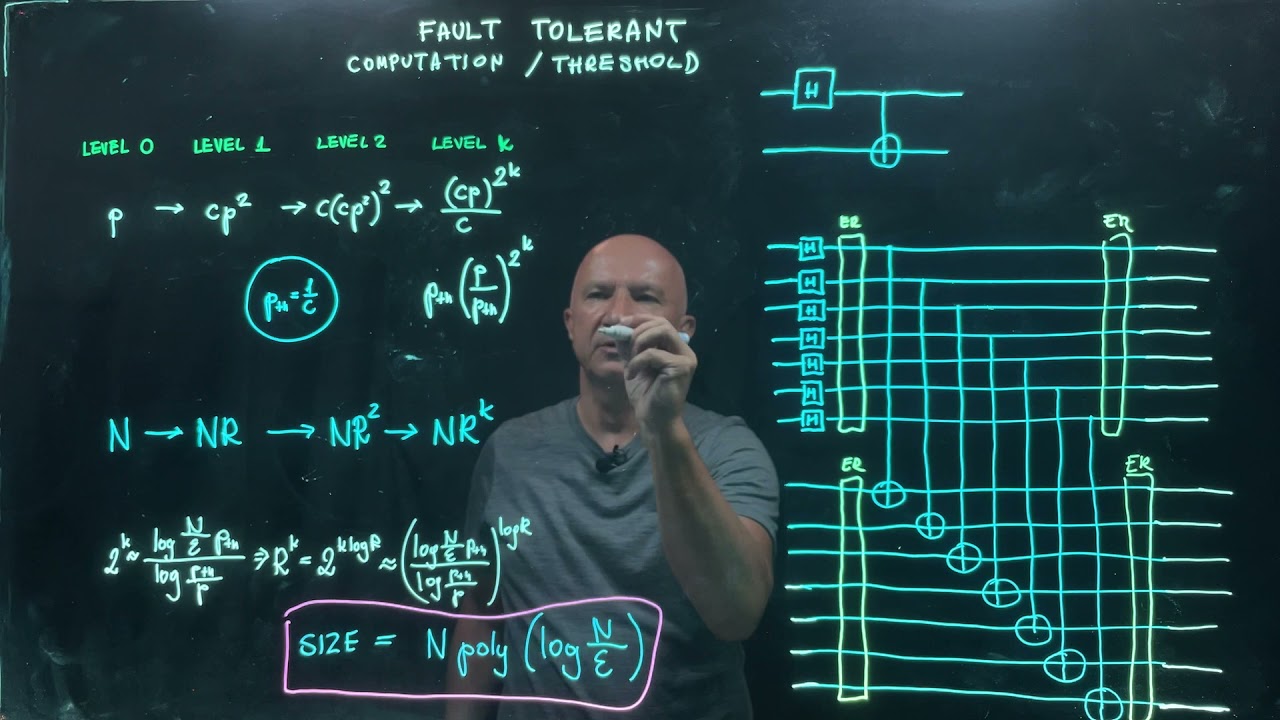 FAULT TOLERANT
COMPUTATION / THRESHOLD
LEVEL 0 LEVEL 1 LEVEL 2 LEVEL k
p → cp² → c(cp²)² → (cp)^{2^k}/c
p_th = 1/c
p_th (p/p_th)^{2^k}
N → NR → NR² → NR^k
2^k ≈ log N/ε p_th / log p_th/p ⇒ R^k = 2^{k log R} ≈ (log N/ε p_th / log p_th/p)^{log R}
SIZE = N poly (log N/ε)
H
ER ER
H
H
H
H
H
H
H
ER ER